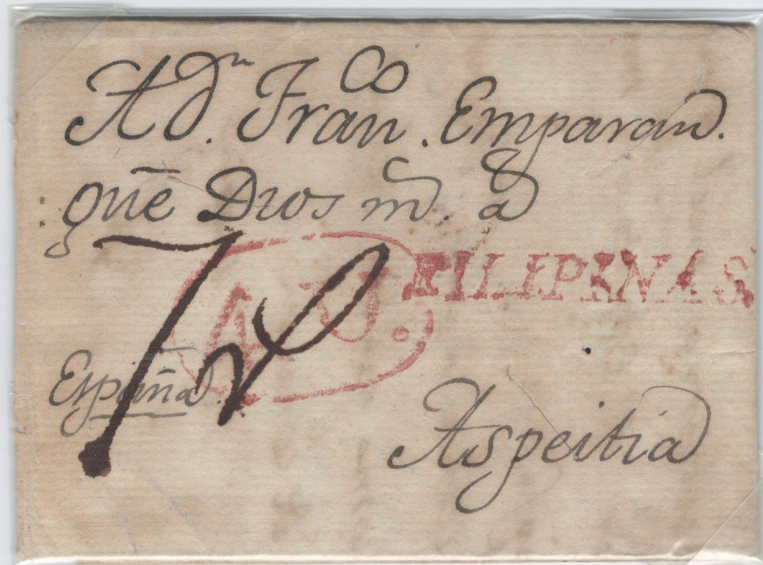 A Dn. Franco. Emparan.
que Dios ms. as
FILIPINAS
España
Aspeitia